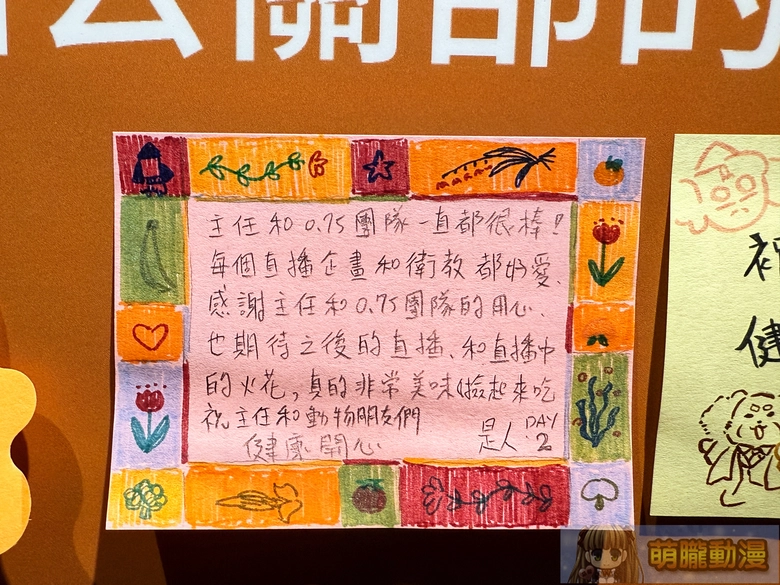 公關部的
主任和0.75團隊一直都很棒!
每個直播企畫和衛教都好愛、
感謝主任和0.75團隊的用心、
也期待之後的直播、和直播中
的火花，真的非常美味(撿起來吃
祝主任和動物朋友們
健康開心
是人 DAY 2
祝
健
萌朧動漫